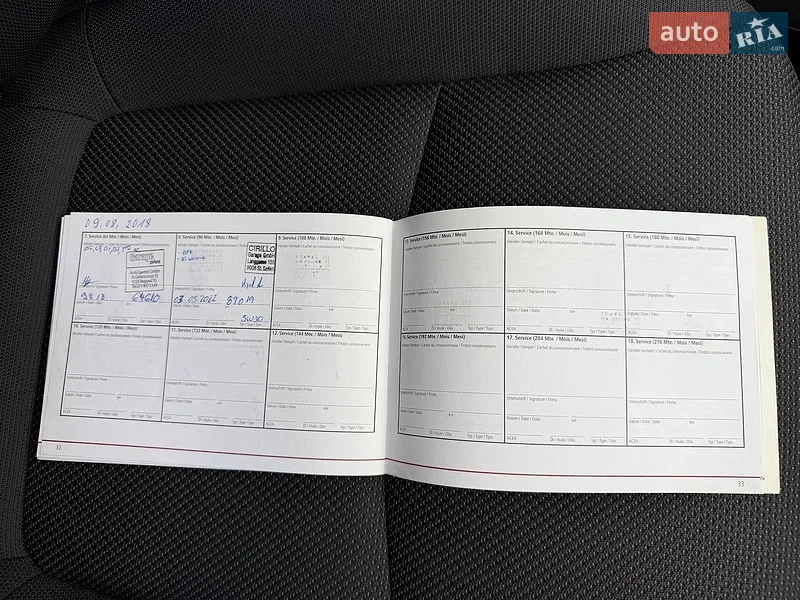 auto RIA .com
09.08.2018
7. Service (84 Mte. / Mois / Mesi)
Händler-Stempel / Cachet du concessionnaire / Timbro concessionario
Garage
plus
Unterschrift / Signature / Firma
9.8.18
64610
Datum / Date / Data
km
ACEA
Öl / Huile / Olio
Typ / Type / Tipo
8. Service (96 Mte. / Mois / Mesi)
Händler-Stempel / Cachet du concessionnaire / Timbro concessionario
CIRILLO
Garage GmbH
Unterschrift / Signature / Firma
03.05.2022
87019
Datum / Date / Data
5W30
ACEA
Öl / Huile / Olio
Typ / Type / Tipo
9. Service (108 Mte. / Mois / Mesi)
Händler-Stempel / Cachet du concessionnaire / Timbro concessionario
Unterschrift / Signature / Firma
Datum / Date / Data
km
ACEA
Öl / Huile / Olio
Typ / Type / Tipo
10. Service (120 Mte. / Mois / Mesi)
Händler-Stempel / Cachet du concessionnaire / Timbro concessionario
Unterschrift / Signature / Firma
Datum / Date / Data
km
ACEA
Öl / Huile / Olio
Typ / Type / Tipo
11. Service (132 Mte. / Mois / Mesi)
Händler-Stempel / Cachet du concessionnaire / Timbro concessionario
Unterschrift / Signature / Firma
Datum / Date / Data
km
ACEA
Öl / Huile / Olio
Typ / Type / Tipo
12. Service (144 Mte. / Mois / Mesi)
Händler-Stempel / Cachet du concessionnaire / Timbro concessionario
Unterschrift / Signature / Firma
Datum / Date / Data
km
ACEA
Öl / Huile / Olio
Typ / Type / Tipo
32
13. Service (156 Mte. / Mois / Mesi)
Händler-Stempel / Cachet du concessionnaire / Timbro concessionario
Unterschrift / Signature / Firma
Datum / Date / Data
km
ACEA
Öl / Huile / Olio
Typ / Type / Tipo
14. Service (168 Mte. / Mois / Mesi)
Händler-Stempel / Cachet du concessionnaire / Timbro concessionario
Unterschrift / Signature / Firma
Datum / Date / Data
km
ACEA
Öl / Huile / Olio
Typ / Type / Tipo
15. Service (180 Mte. / Mois / Mesi)
Händler-Stempel / Cachet du concessionnaire / Timbro concessionario
Unterschrift / Signature / Firma
Datum / Date / Data
km
ACEA
Öl / Huile / Olio
Typ / Type / Tipo
16. Service (192 Mte. / Mois / Mesi)
Händler-Stempel / Cachet du concessionnaire / Timbro concessionario
Unterschrift / Signature / Firma
Datum / Date / Data
km
ACEA
Öl / Huile / Olio
Typ / Type / Tipo
17. Service (204 Mte. / Mois / Mesi)
Händler-Stempel / Cachet du concessionnaire / Timbro concessionario
Unterschrift / Signature / Firma
Datum / Date / Data
km
ACEA
Öl / Huile / Olio
Typ / Type / Tipo
18. Service (216 Mte. / Mois / Mesi)
Händler-Stempel / Cachet du concessionnaire / Timbro concessionario
Unterschrift / Signature / Firma
Datum / Date / Data
km
ACEA
Öl / Huile / Olio
Typ / Type / Tipo
33